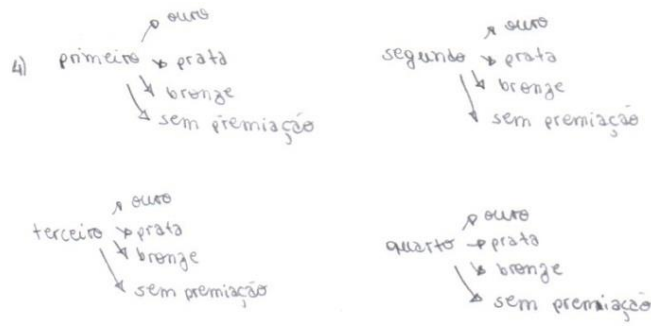 4) primeiro
ouro
prata
bronze
sem premiação
segundo
ouro
prata
bronze
sem premiação
terceiro
ouro
prata
bronze
sem premiação
quarto
ouro
prata
bronze
sem premiação